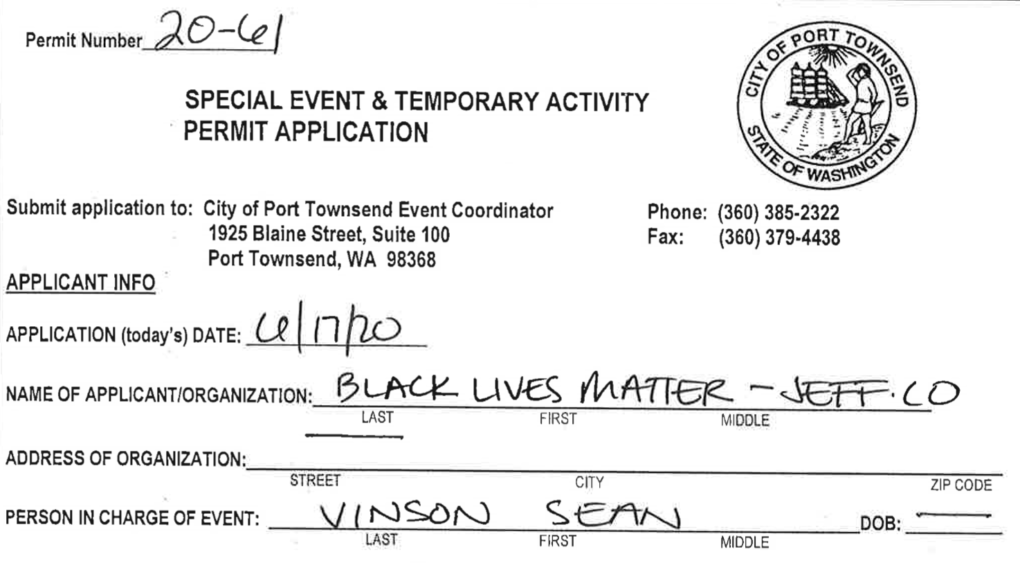 Permit Number 20-61
CITY OF PORT TOWNSEND
STATE OF WASHINGTON
SPECIAL EVENT & TEMPORARY ACTIVITY
PERMIT APPLICATION
Submit application to: City of Port Townsend Event Coordinator
1925 Blaine Street, Suite 100
Port Townsend, WA 98368
Phone: (360) 385-2322
Fax: (360) 379-4438
APPLICANT INFO
APPLICATION (today's) DATE: 6/17/20
NAME OF APPLICANT/ORGANIZATION: BLACK LIVES MATTER - JEFF. CO
LAST FIRST MIDDLE
ADDRESS OF ORGANIZATION:
STREET CITY ZIP CODE
PERSON IN CHARGE OF EVENT: VINSON SEAN DOB:
LAST FIRST MIDDLE